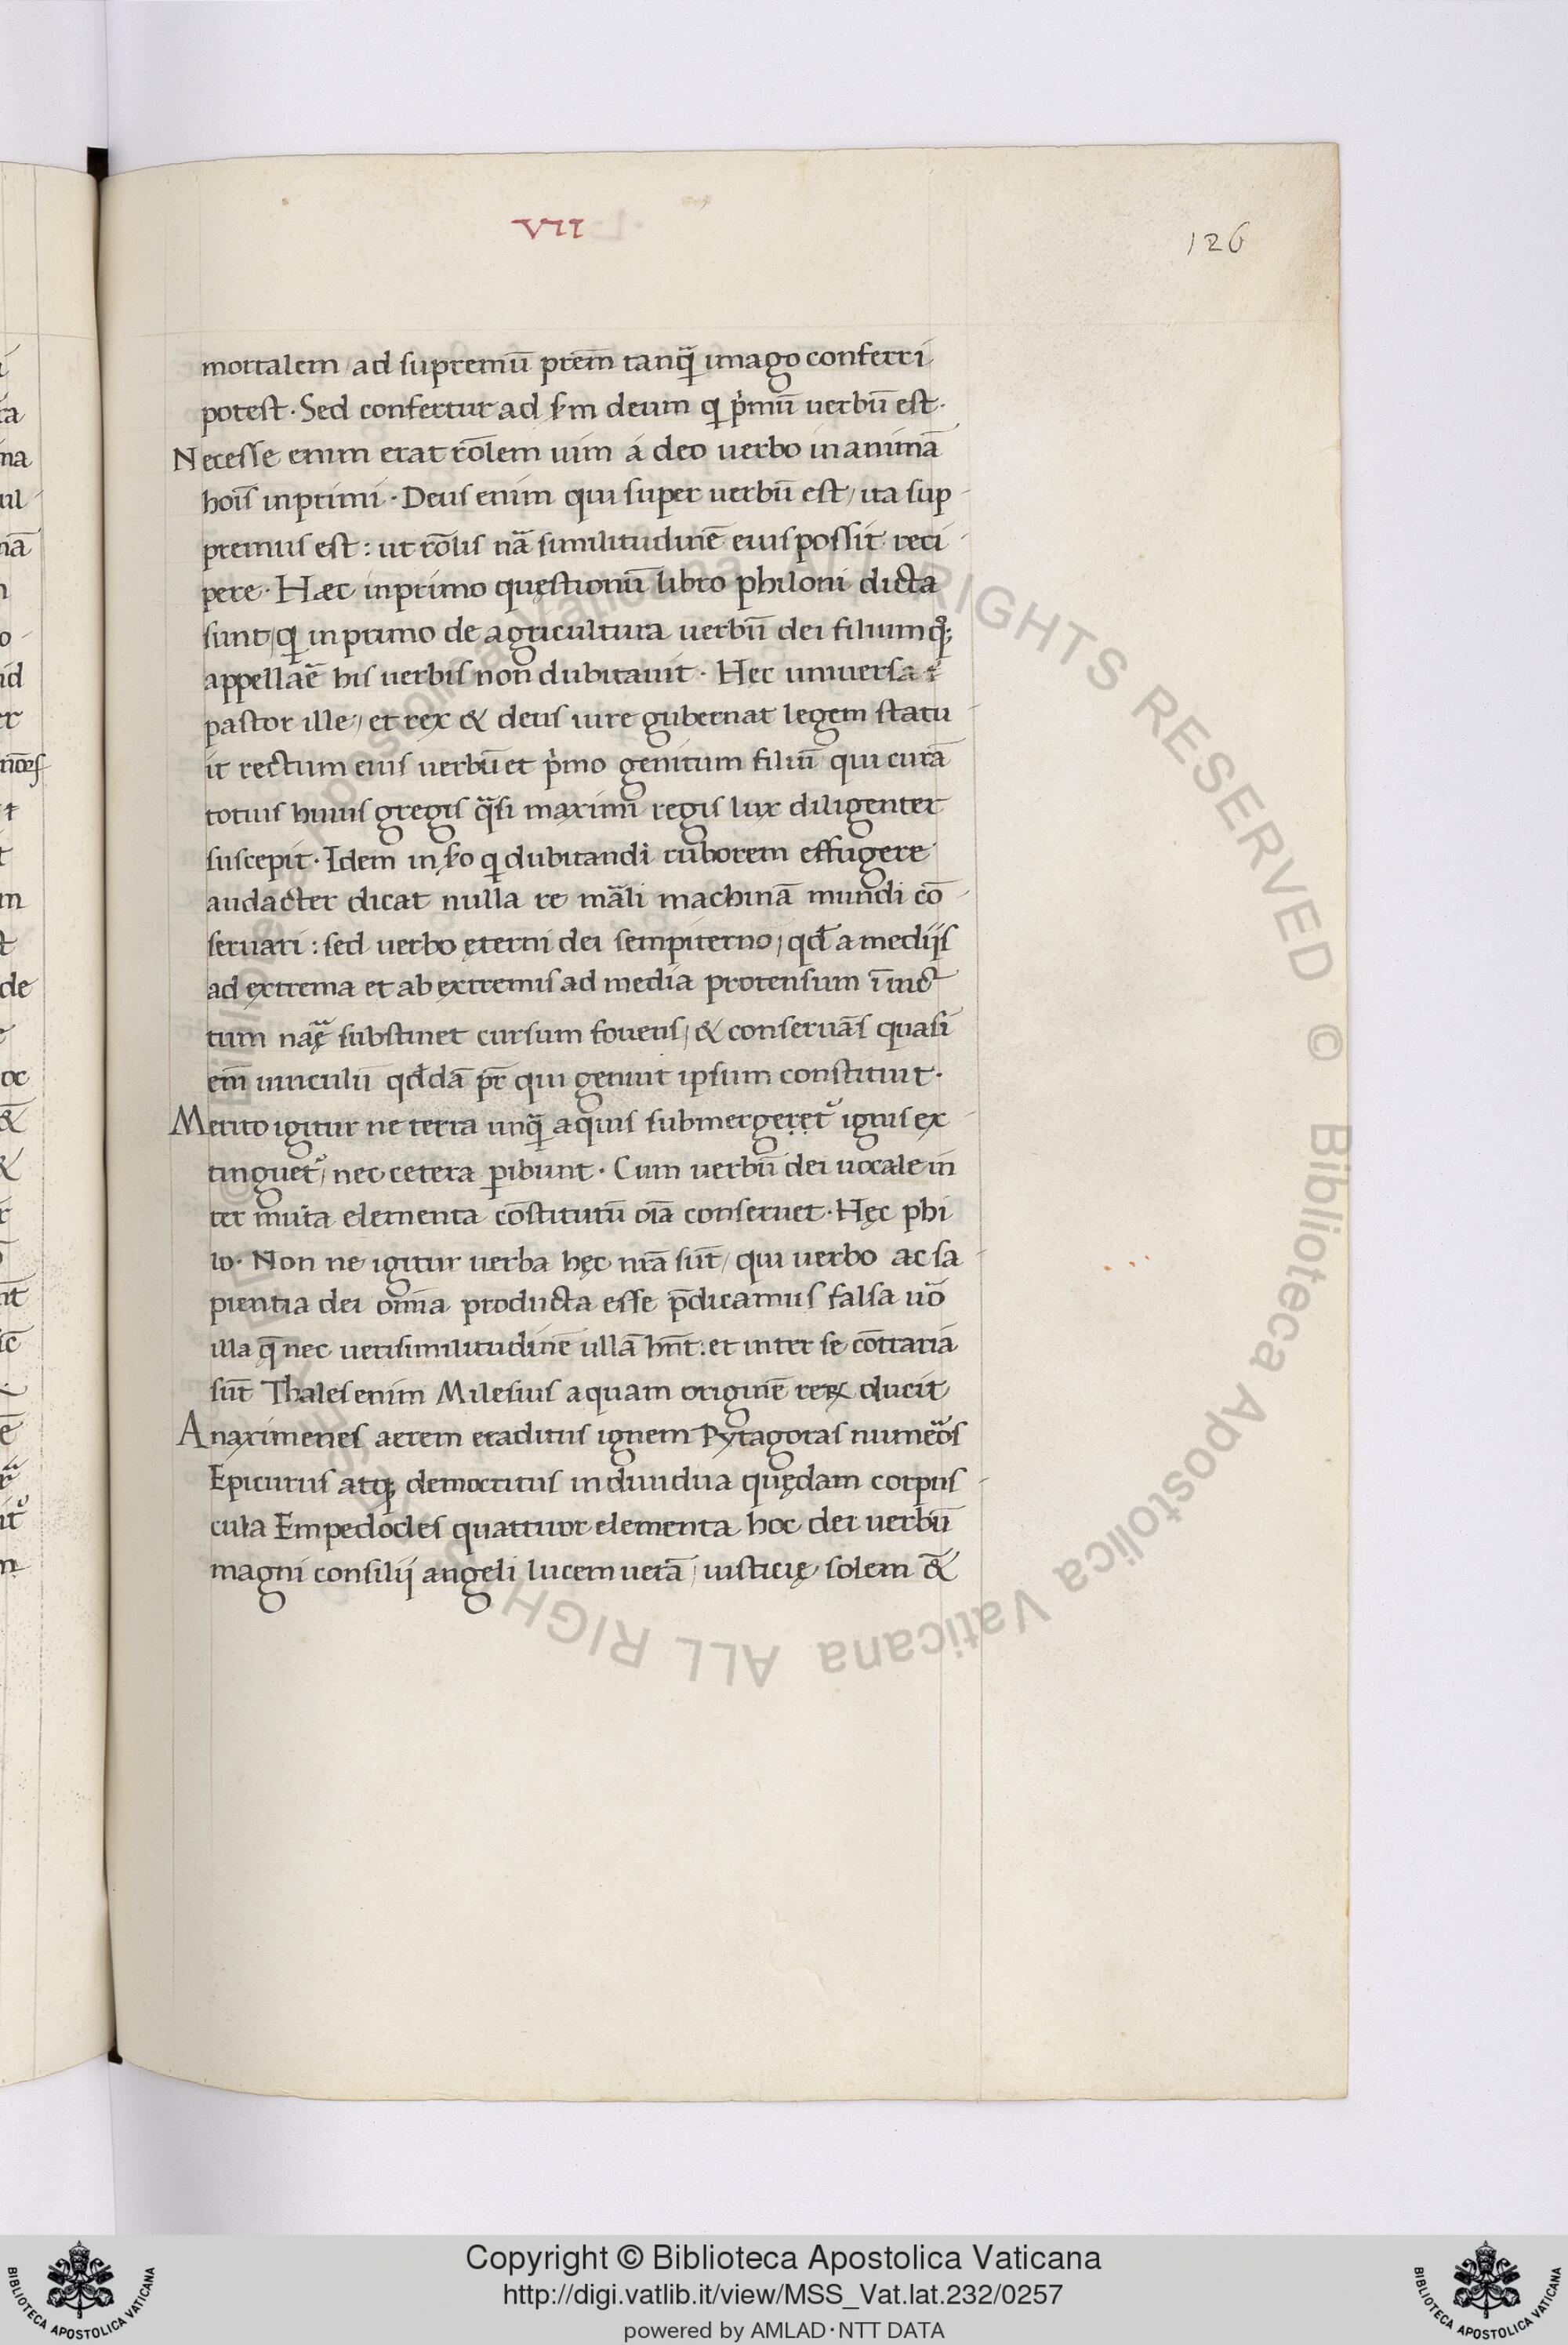 VII
126
mortalem / ad supremū prēm tanq̄ imago conferri
potest · Sed confertur ad s͛m deum q p̍mū uerbū est ·
Necesse enim erat rōlem uim á deo uerbo in animā
hoīs inprimi · Deus enim qui super uerbū est / ita sup
premus est : ut rōlis nā similitudinē eius possit reci
pere · Hæc inprimo quęstionū libro philoni dicta
sunt / q in primo de agricultura uerbū dei filiumq;
appellaē his uerbis non dubitauit · Hęc uniuersa
pastor ille / et rex & deus iure gubernat legem statu
it rectum eius uerbū et p̍mo genitum filiū qui curā
totius huius gregis q̄si maximi regis lux diligenter
suscepit · Idem in s͛o q dubitandi ruborem effugere
audacter dicat nulla re māli machinā mundi cō
seruari : sed uerbo ęterni dei sempiterno / qđ a medijs
ad extrema et ab extremis ad media protensum īuic
tum naę̄ substinet cursum fouens / & conseruās quasi
em̄ uinculū qđdā pr̄ qui genuit ipsum constituit ·
Merito igitur ne terra unq̄ aquis submergeret᷑ ignis ex
tinguet᷑ / nec cetera ꝑibunt · Cum uerbū dei uocale in
ter muta elementa cōstitutū oīa conseruet · Hęc phi
lo · Non ne igitur uerba hęc nrā sūt / qui uerbo ac sa
pientia dei omīa producta esse p̄dicamus falsa uō
illa q̄ nec uerisimilitudinē ullā hn̄t : et inter se cōtraria
sūt Thales enim Milesius aquam originē rerꝝ ducit
Anaximenes aerem eraditus ignem Pytagoras numeōs
Epicurus atq; democritus indiuidua quędam corpus
cula Empedocles quattuor elementa hoc dei uerbū
magni consilij angeli lucem uerā / iusticię solem &
Copyright © Biblioteca Apostolica Vaticana
http://digi.vatlib.it/view/MSS_Vat.lat.232/0257
powered by AMLAD·NTT DATA